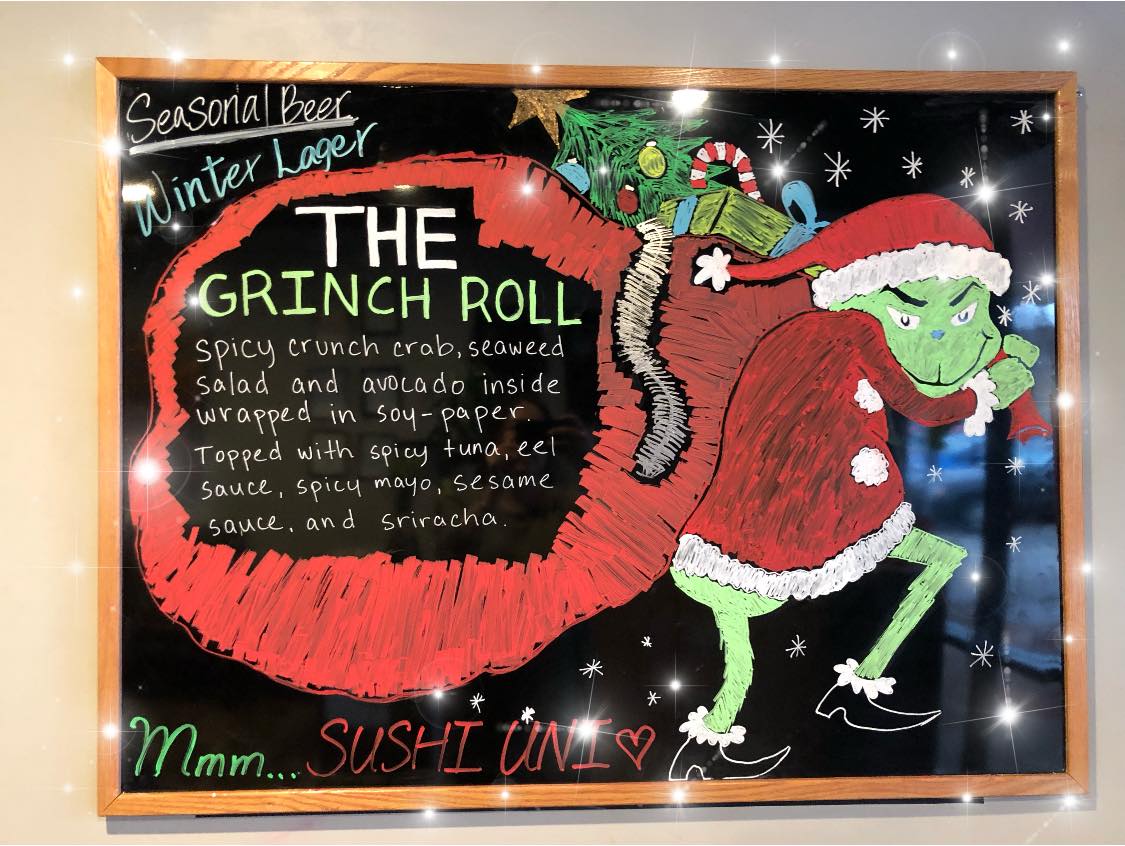 Seasonal Beer
Winter Lager
THE
GRINCH ROLL
spicy crunch crab, seaweed
salad and avocado inside
wrapped in soy-paper.
Topped with spicy tuna, eel
sauce, spicy mayo, sesame
sauce, and sriracha.
Mmm... SUSHI UNI ♡